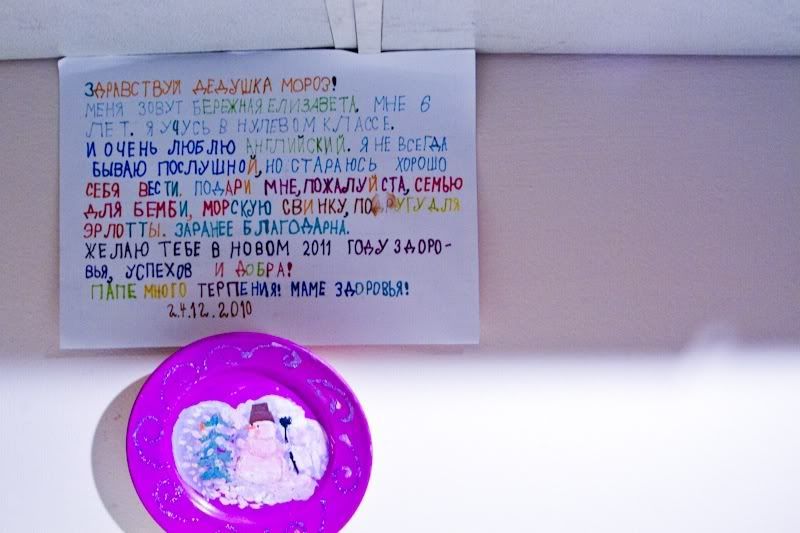 ЗДРАВСТВУЙ ДЕДУШКА МОРОЗ!
МЕНЯ ЗОВУТ БЕРЕЖНАЯ ЕЛИЗАВЕТА. МНЕ 6
ЛЕТ. Я УЧУСЬ В НУЛЕВОМ КЛАССЕ.
И ОЧЕНЬ ЛЮБЛЮ АНГЛИЙСКИЙ. Я НЕ ВСЕГДА
БЫВАЮ ПОСЛУШНОЙ, НО СТАРАЮСЬ ХОРОШО
СЕБЯ ВЕСТИ. ПОДАРИ МНЕ, ПОЖАЛУЙСТА, СЕМЬЮ
ДЛЯ БЕМБИ, МОРСКУЮ СВИНКУ, ПОДРУГУ ДЛЯ
ЭРЛОТТЫ. ЗАРАНЕЕ БЛАГОДАРНА.
ЖЕЛАЮ ТЕБЕ В НОВОМ 2011 ГОДУ ЗДОРО-
ВЬЯ, УСПЕХОВ И ДОБРА!
ПАПЕ МНОГО ТЕРПЕНИЯ! МАМЕ ЗДОРОВЬЯ!
24.12.2010